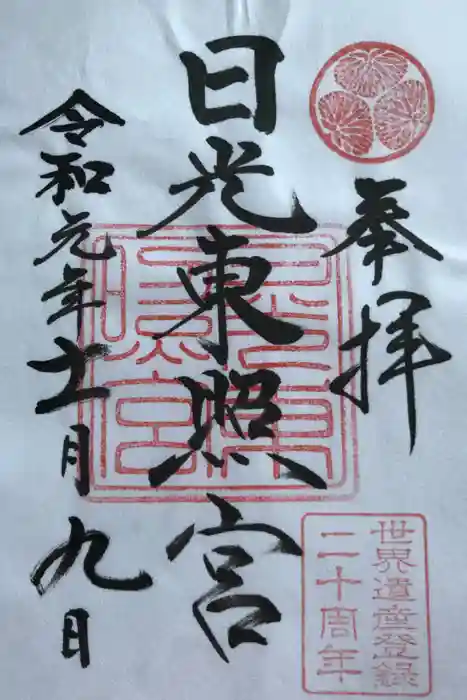 奉拝
世界遺産登録
二十周年
日光東照宮
令和元年十一月九日